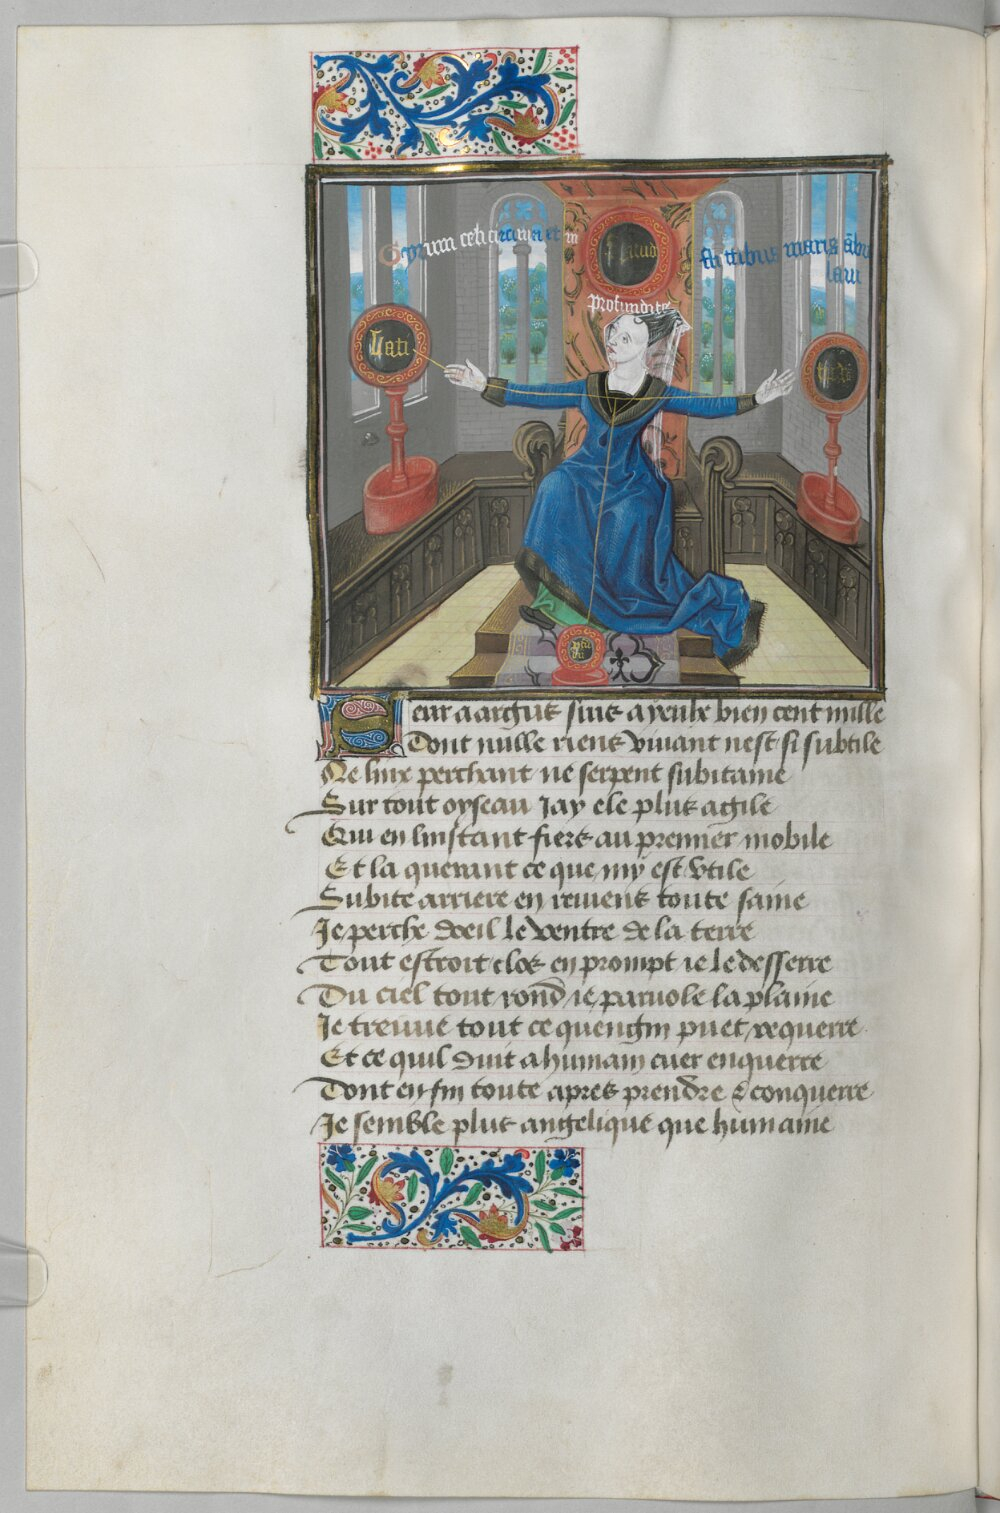 Gyrum celi circuivi et in
fluctibus maris ābu
lavi
profundite
Lati
Seur a argus suis a yeulx bien cent mille
Dont nulle riens vivant nest si subtile
Ne linx perchant ne serpent subitaine
Sur tout oyseau Jay ele plus agile
Qui en linstant fiers au premier mobile
Et la querant ce que my est utile
Subite arriere en reviens toute saine
Je perche doeil le ventre de la terre
Tout estroit clos en prompt ie le desserre
Du ciel tout rond ie parvole la plaine
Je treuve tout ce quengin puet requerre
Et ce quil duit a humain cuer enquerre
Dont en fin toute apres prendre & conquerre
Je semble plus angelique que humaine